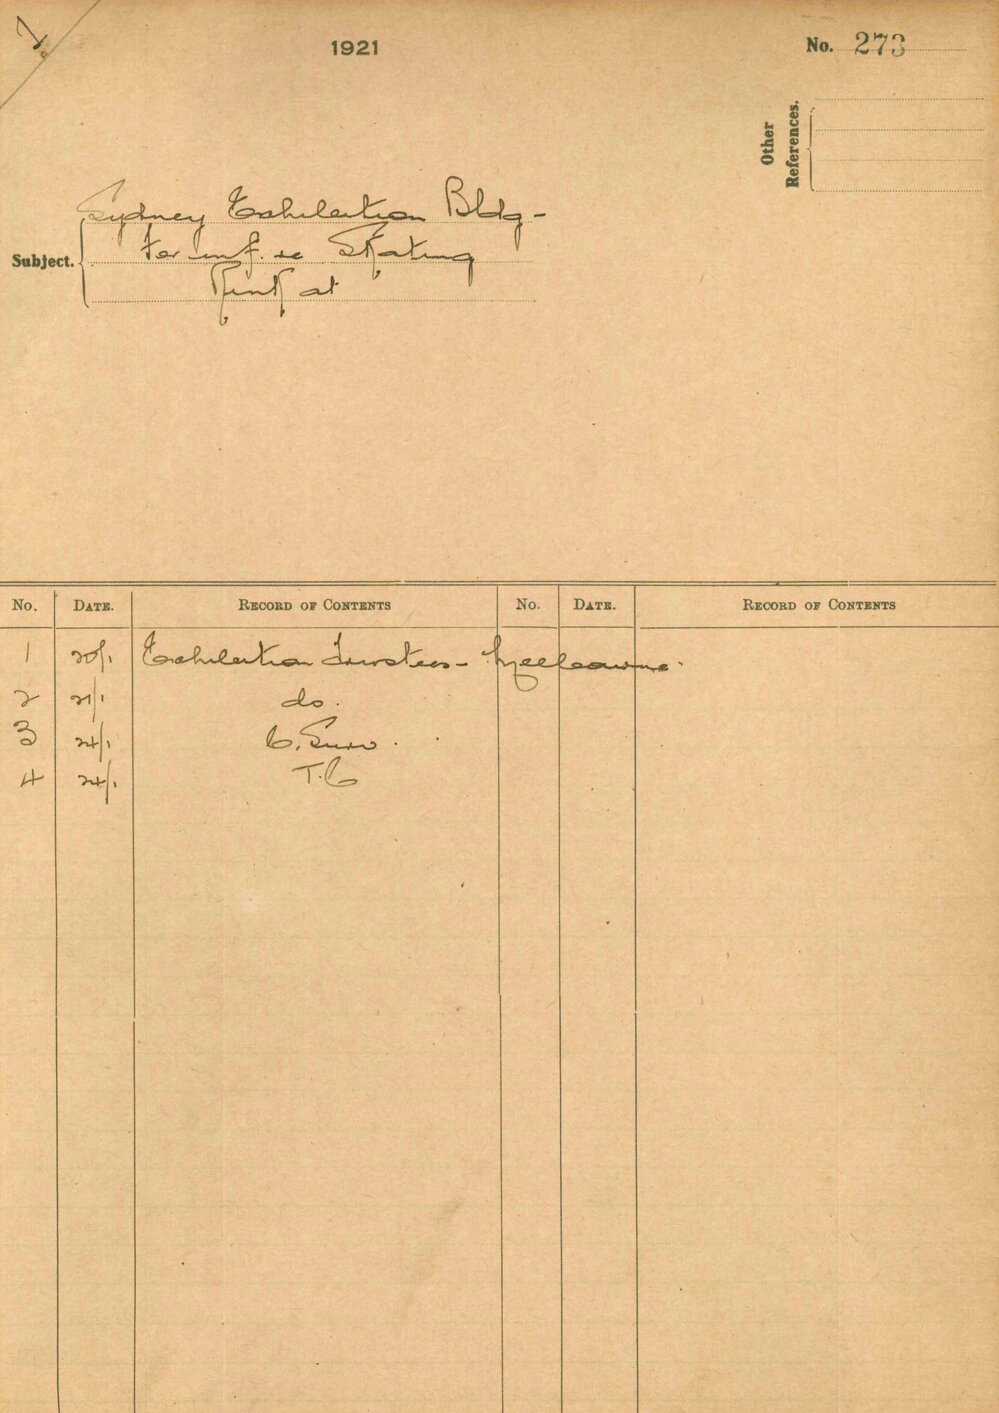 1921
No. 273
Other
References.
Sydney Exhibition Bldg -
Subject. for inf. re Skating
Rink at
No. DATE. RECORD OF CONTENTS No. DATE. RECORD OF CONTENTS
1 20/1 Exhibition Trustees - Melbourne.
2 21/1 do.
3 24/1 C. Surv.
4 24/1 T.C